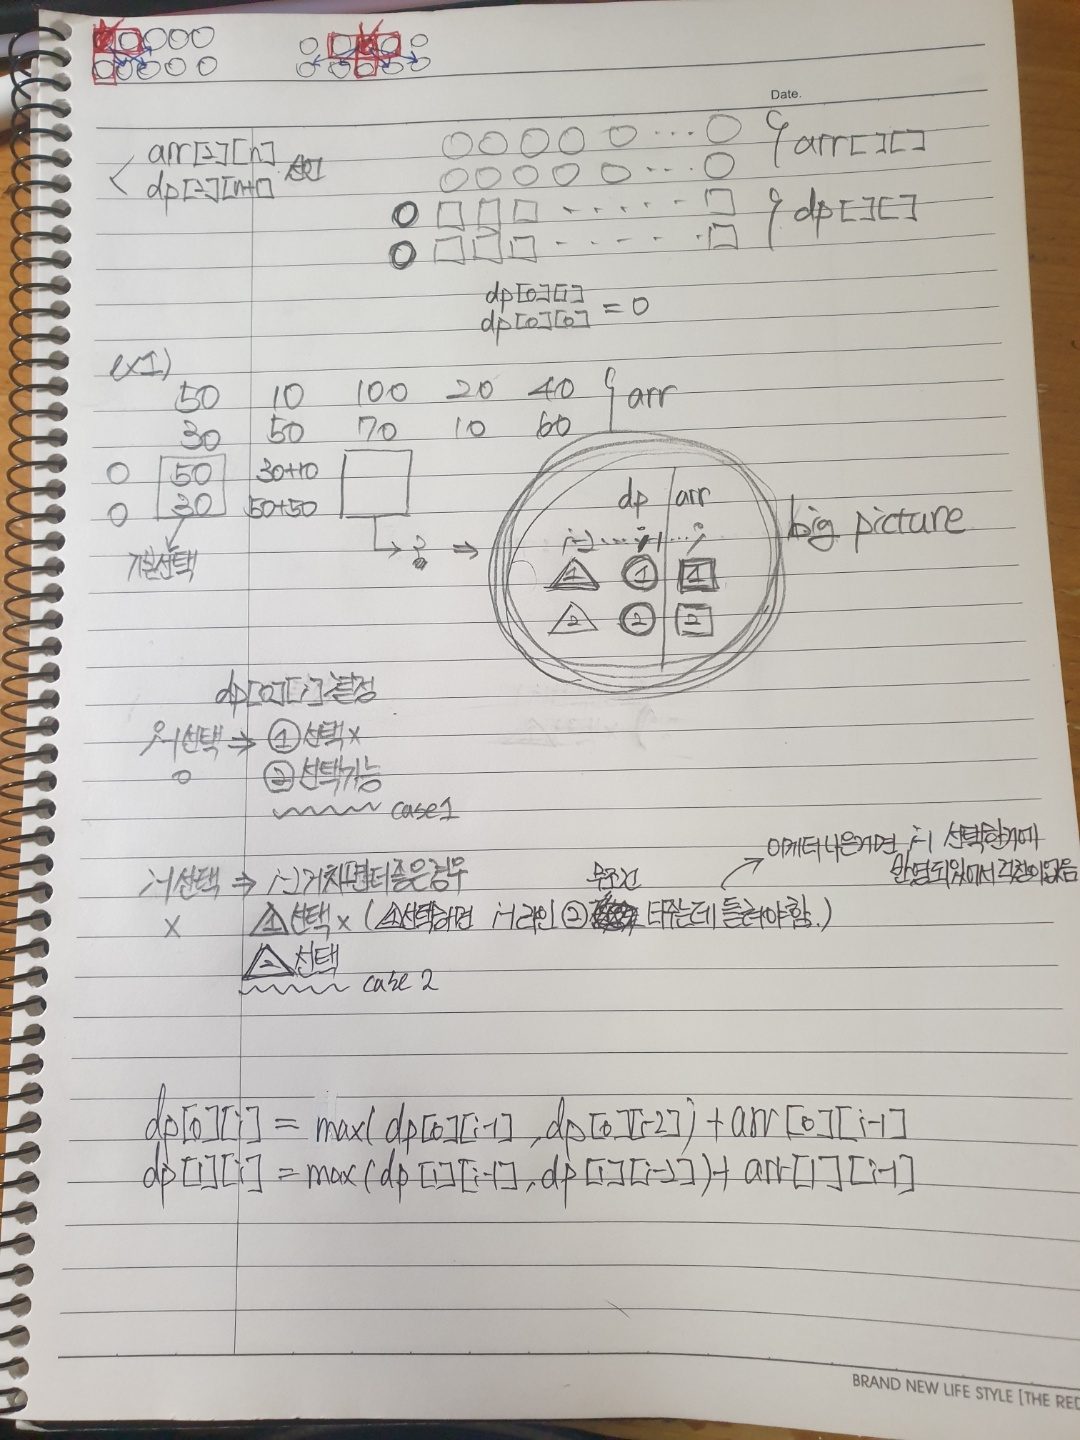 Date.
arr[2][n]
dp[2][n+1]
arr[][]
dp[][]
dp[0][1]
dp[0][0] = 0
ex1)
50 10 100 20 40 arr
30 50 70 10 60
0 50 30+10
0 30 50+50
기본선택
?
⇒
dp arr
i-2 ... i-1 ... i
1 1 1
2 2 2
big picture
dp[0][i] 결정
i-1선택 ⇒ ① 선택 x
o ② 선택가능
case 1
이게 더 나은거면 i-1 선택한거에
반영되있어서 걱정이없음
i-1선택 ⇒ i-2거치면 더 좋은경우
무조건
x 1 선택 x ( 1 선택하면 i-1라인 ② 더주는데 들려야함.)
2 선택
case 2
dp[0][i] = max( dp[0][i-1] , dp[0][i-2] ) + arr[0][i-1]
dp[1][i] = max( dp[1][i-1] , dp[1][i-2] ) + arr[1][i-1]
BRAND NEW LIFE STYLE [THE RED